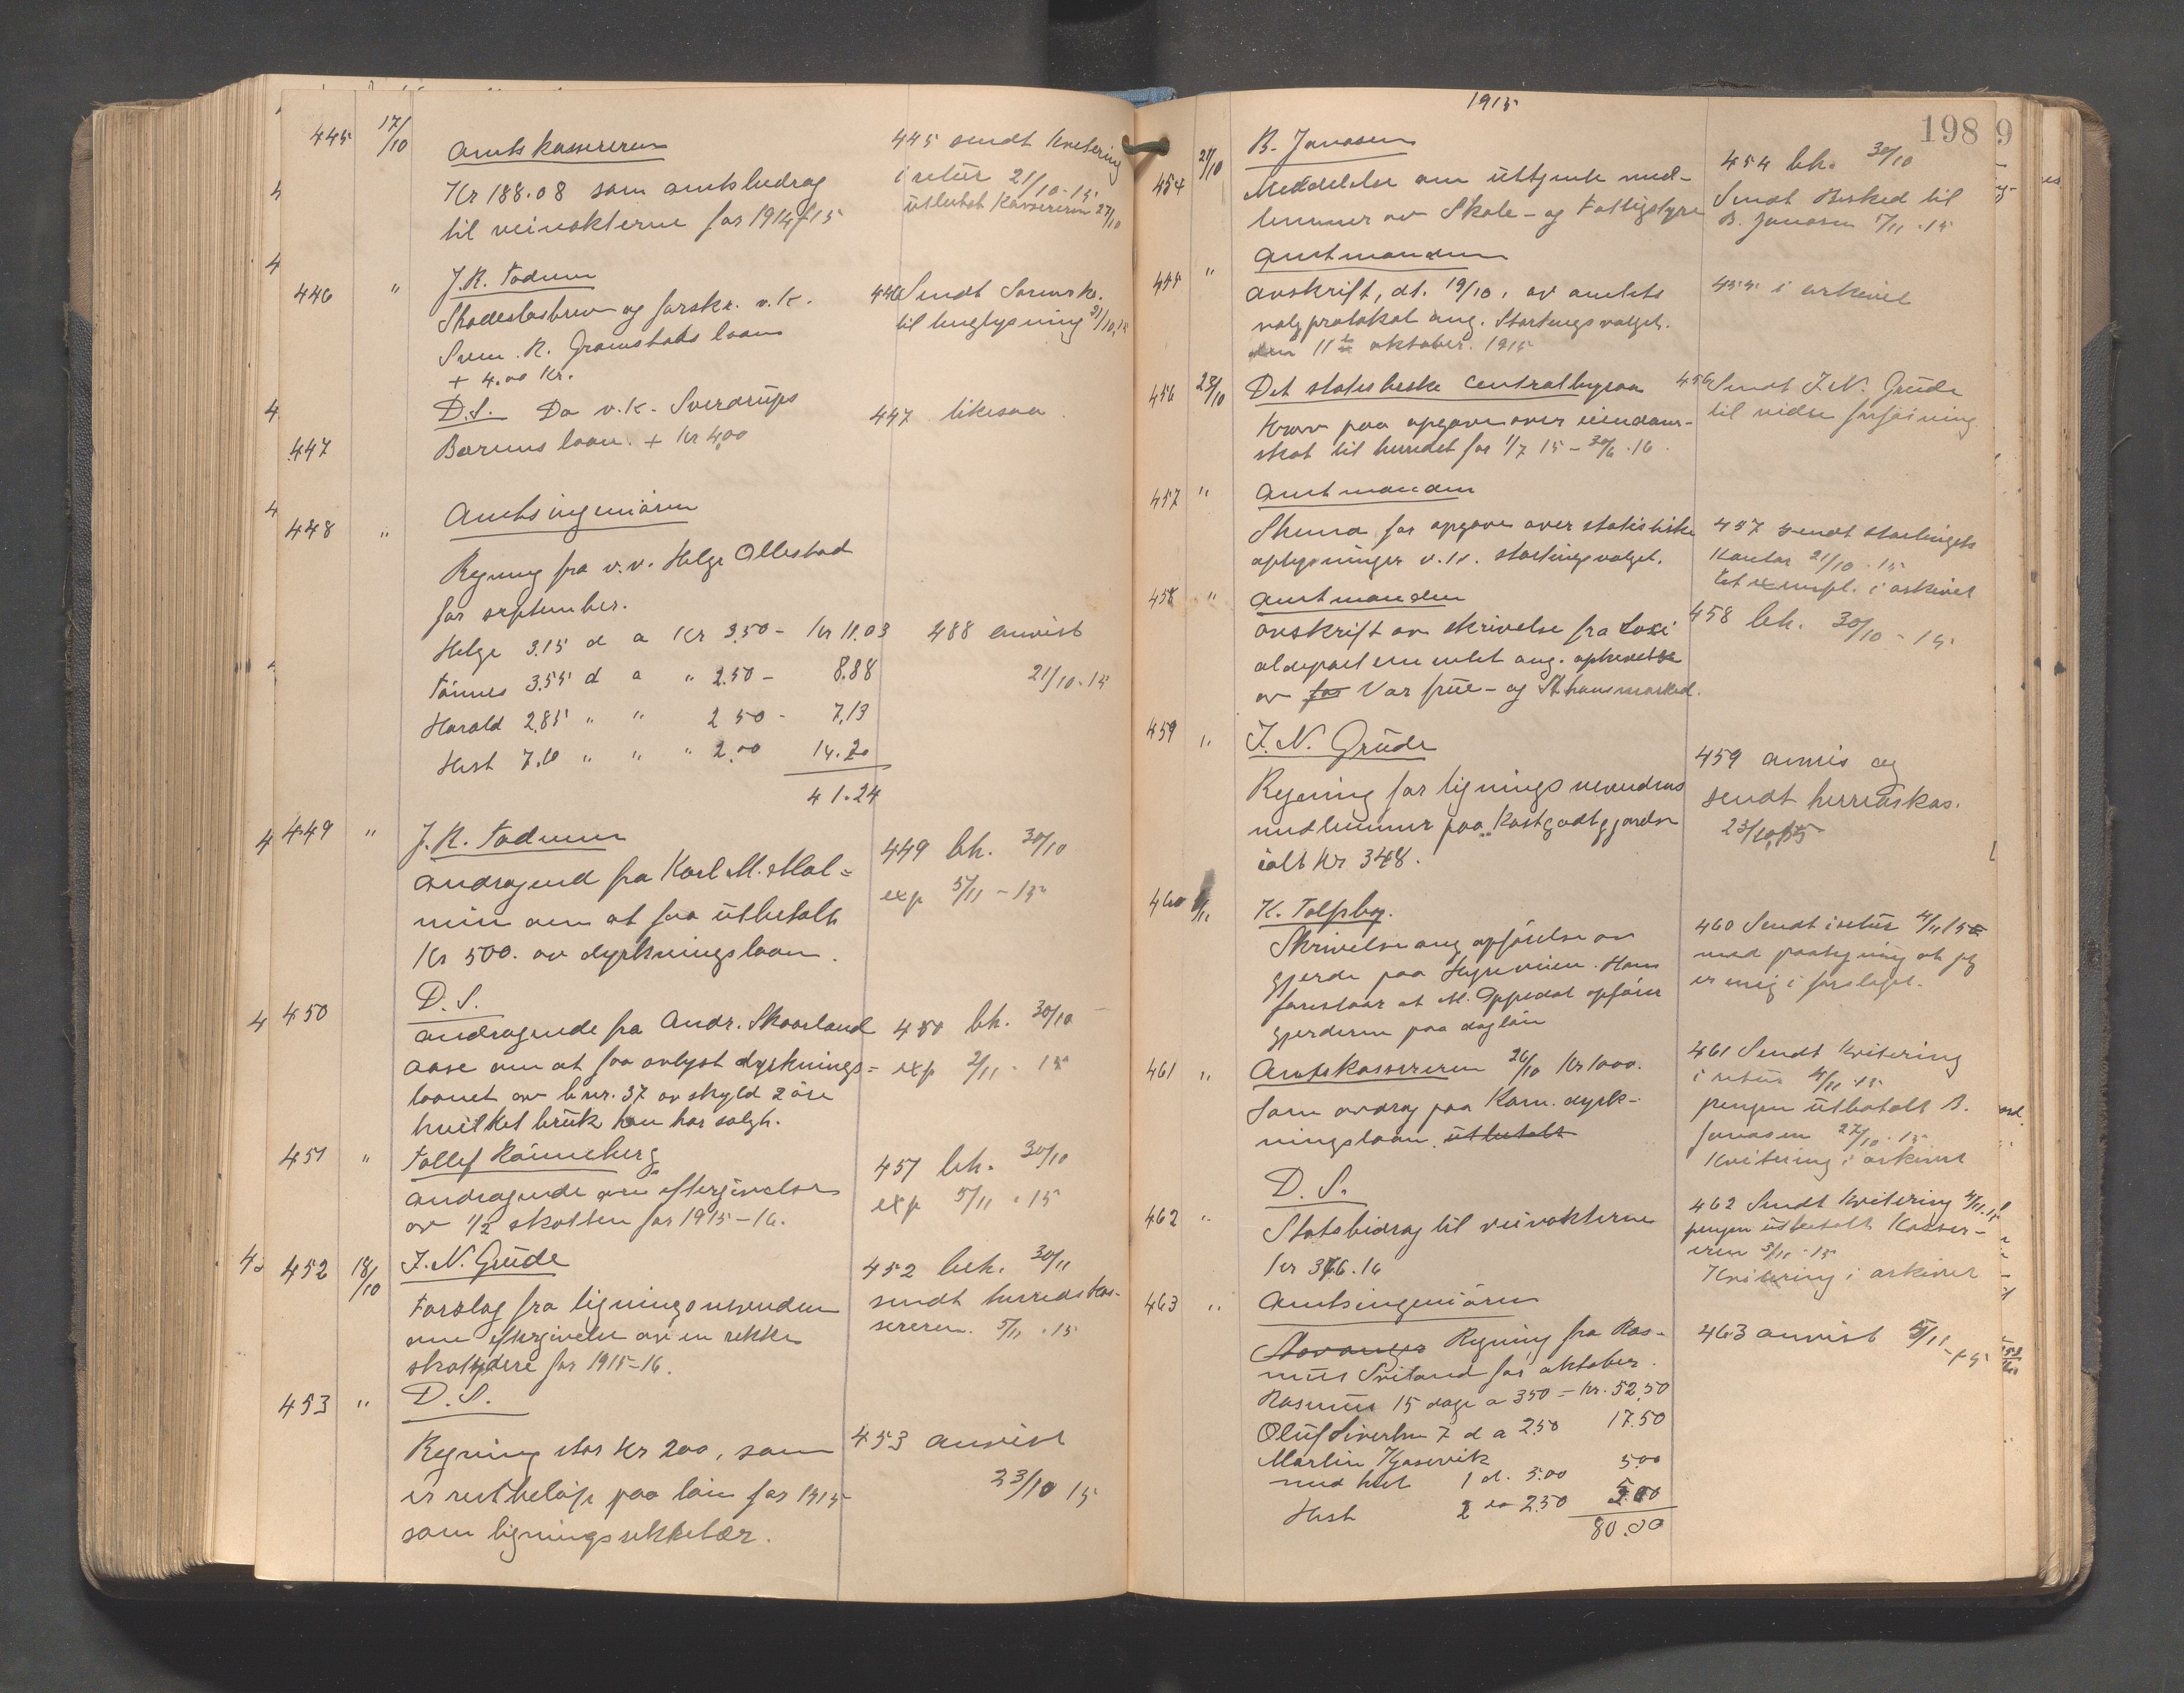 445 17/10 Amtskassereren
Kr 188.08 som amtsbidrag
til veivokterne for 1914/15
445 sendt kvitering
i retur 21/10-15
utbetalt Kassereren 27/10
446 " J.R. Todnem
Skadeslosbrev og forskr. v.k.
Sven R. Gramstads laan
+ 4.00 Kr.
446 Sendt Sorensk.
til tinglysning 21/10.15
447 D.S. Do v.k. Sverdrups
Barnas laan. + Kr 4,00
447 likesaa
448 " Amtsingeniøren
Regning fra v.v. Helge Ollestad
for september.
Helge 3.15 d a Kr 3.50 - Kr 11.03
Tønnes 3.55 d a " 2.50 - 8.88
Harald 2,85 " " 2 50 - 7,13
Hest 7,10 " " " 2.00 14.20
41.24
488 anvist
21/10-15
449 " J.R. Todnem
Andragend fra Karl M. Mal=
min om at faa utbetalt
Kr 500. av dyrkningslaan.
449 bh. 30/10
exp 5/11 - 15
450 D.S.
Andragende fra Andr. Skaarland
Aase om at faa avlyst dyrknings=
laanet av bnr. 37 av skyld 2 øre
hvilket bruk han har solgt.
450 bh. 30/10
exp 2/11 - 15
451 " Tollef Rønneberg
Andragende om eftergivelse
av 1/2 skatten for 1915-16.
451 bh. 30/10
exp 5/11 - 15
452 18/10 J.N. Grude
Forslag fra ligningsnevnden
om eftergivelse av en rekke
skatydere for 1915-16.
452 beh. 30/11
sendt herredskas-
sereren. 5/11 . 15
453 " D.S.
Regning stor Kr 200, som
er restbeløp paa løn for 1915
som ligningssekretær.
453 anvist
23/10 15
1915
198 9
454 21/10 B. Jonasen
Meddelelse om uttjente med-
lemmer av Skole- og Fattigstyre
454 bh. 30/10
Sendt Besked til
B. Jonasen 5/11 . 15
455 " Amtmanden
Avskrift, dt. 19/10, av amtets
valgprotokol ang. Stortingsvalget.
den 11te oktober. 1915
455 i arkivet
456 23/10 Det statistiske Centralbyraa
Krav paa opgave over eiendoms-
skat til herredet for 1/7 15 - 30/6.16.
456 Sendt J.N. Grude
til videre forføining.
457 " Amtmanden
Skema for opgave over statistiske
oplysninger v.k. stortingsvalget.
457 sendt stortingets
Kontor 21/10 . 15
Et exempl. i arkivet
458 " Amtmanden
Avskrift av skrivelse fra Soci
aldepartementet ang. ophevelse
av for Var frue- og St. hansmarked.
458 bh. 30/10 - 15
459 " J.N. Grude
Regning for ligningsnevndens
medlemmer paa Kostgodtgjørelse
ialt Kr 348.
459 anvis og
sendt herredskas.
23/10,15
460 1/11 K. Tolfsby.
Skrivelse ang opførelse av
gjerde paa Høgeveien. Han
foreslaar at M. Oppedal opfører
gjerderne paa dagløn
460 Sendt i retur 4/11 15
med paategning at jeg
er enig i forslaget.
461 " Amtskassereren 26/10 Kr 1000.
som avdrag paa Kom. dyrk-
ningslaan. utbetalt
461 Sendt Kvitering
i retur 4/11 .15
pengene utbetalt B.
Jonasen 27/10 . 15
Kvitering i arkivet
462 " D.S.
Statsbidrag til veivokterne
Kr 376.16
462 Sendt Kvitering 4/11.15
pengene utbetalt Kasser-
eren 5/11 - 15
Kvitering i arkivet
463 " Amtsingeniøren
Stavanger Regning fra Ras-
mus Sviland for oktober.
Rasmus 15 dage a 350 - Kr. 52.50
Oluf Sivertsen 7 d a 2.50 17.50
Martin Kjosavik
med hest 1 d. 5.00 5.00
Hest 2 a 2.50 5.00
80.00
463 anvist 5/11 -15